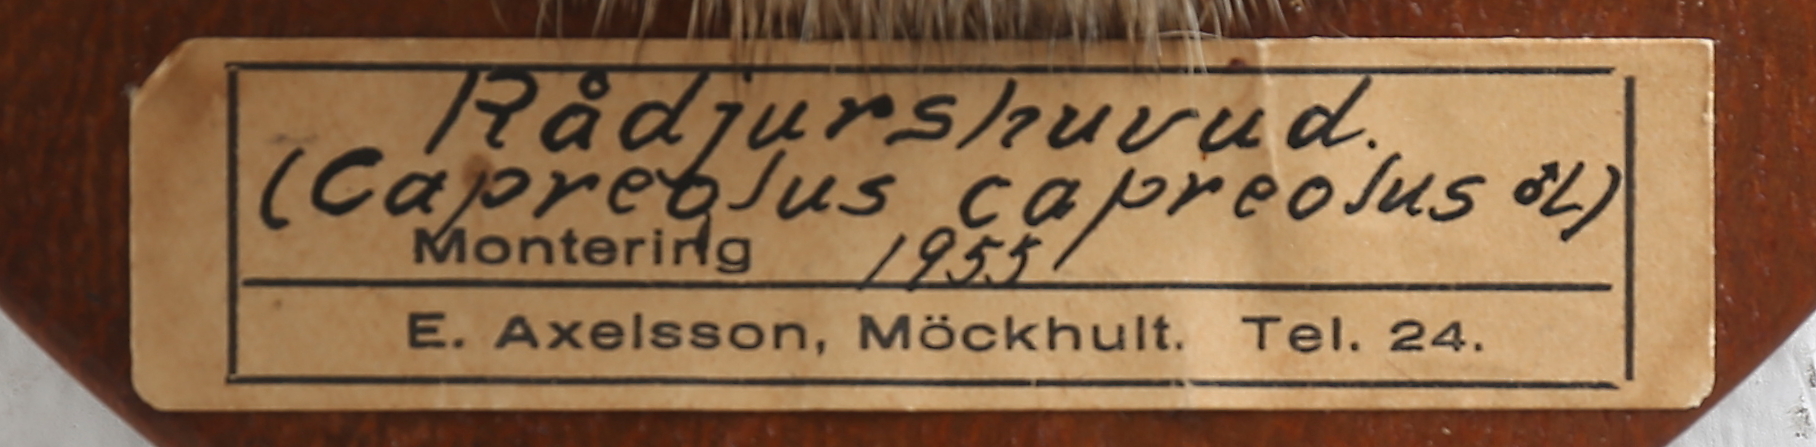 Rådjurshuvud.
(Capreolus capreolus ♂L)
Montering 1955
E. Axelsson, Möckhult. Tel. 24.